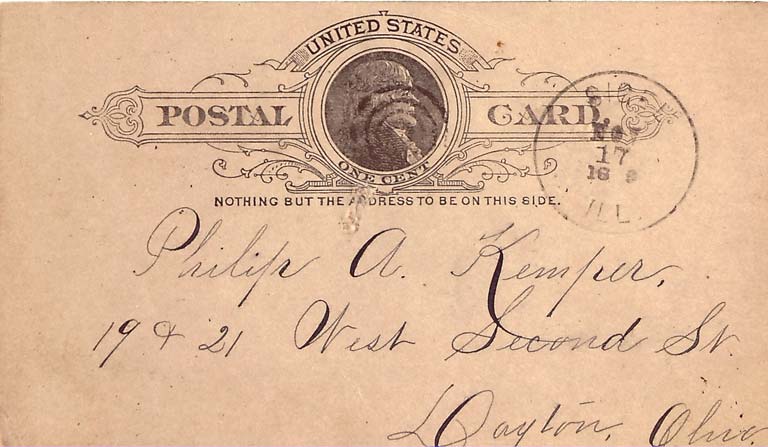 UNITED STATES
POSTAL CARD.
ONE CENT
NOTHING BUT THE ADDRESS TO BE ON THIS SIDE.
17
ILL.
Philip A. Kemper,
19 & 21 West Second St
Dayton, Ohio.